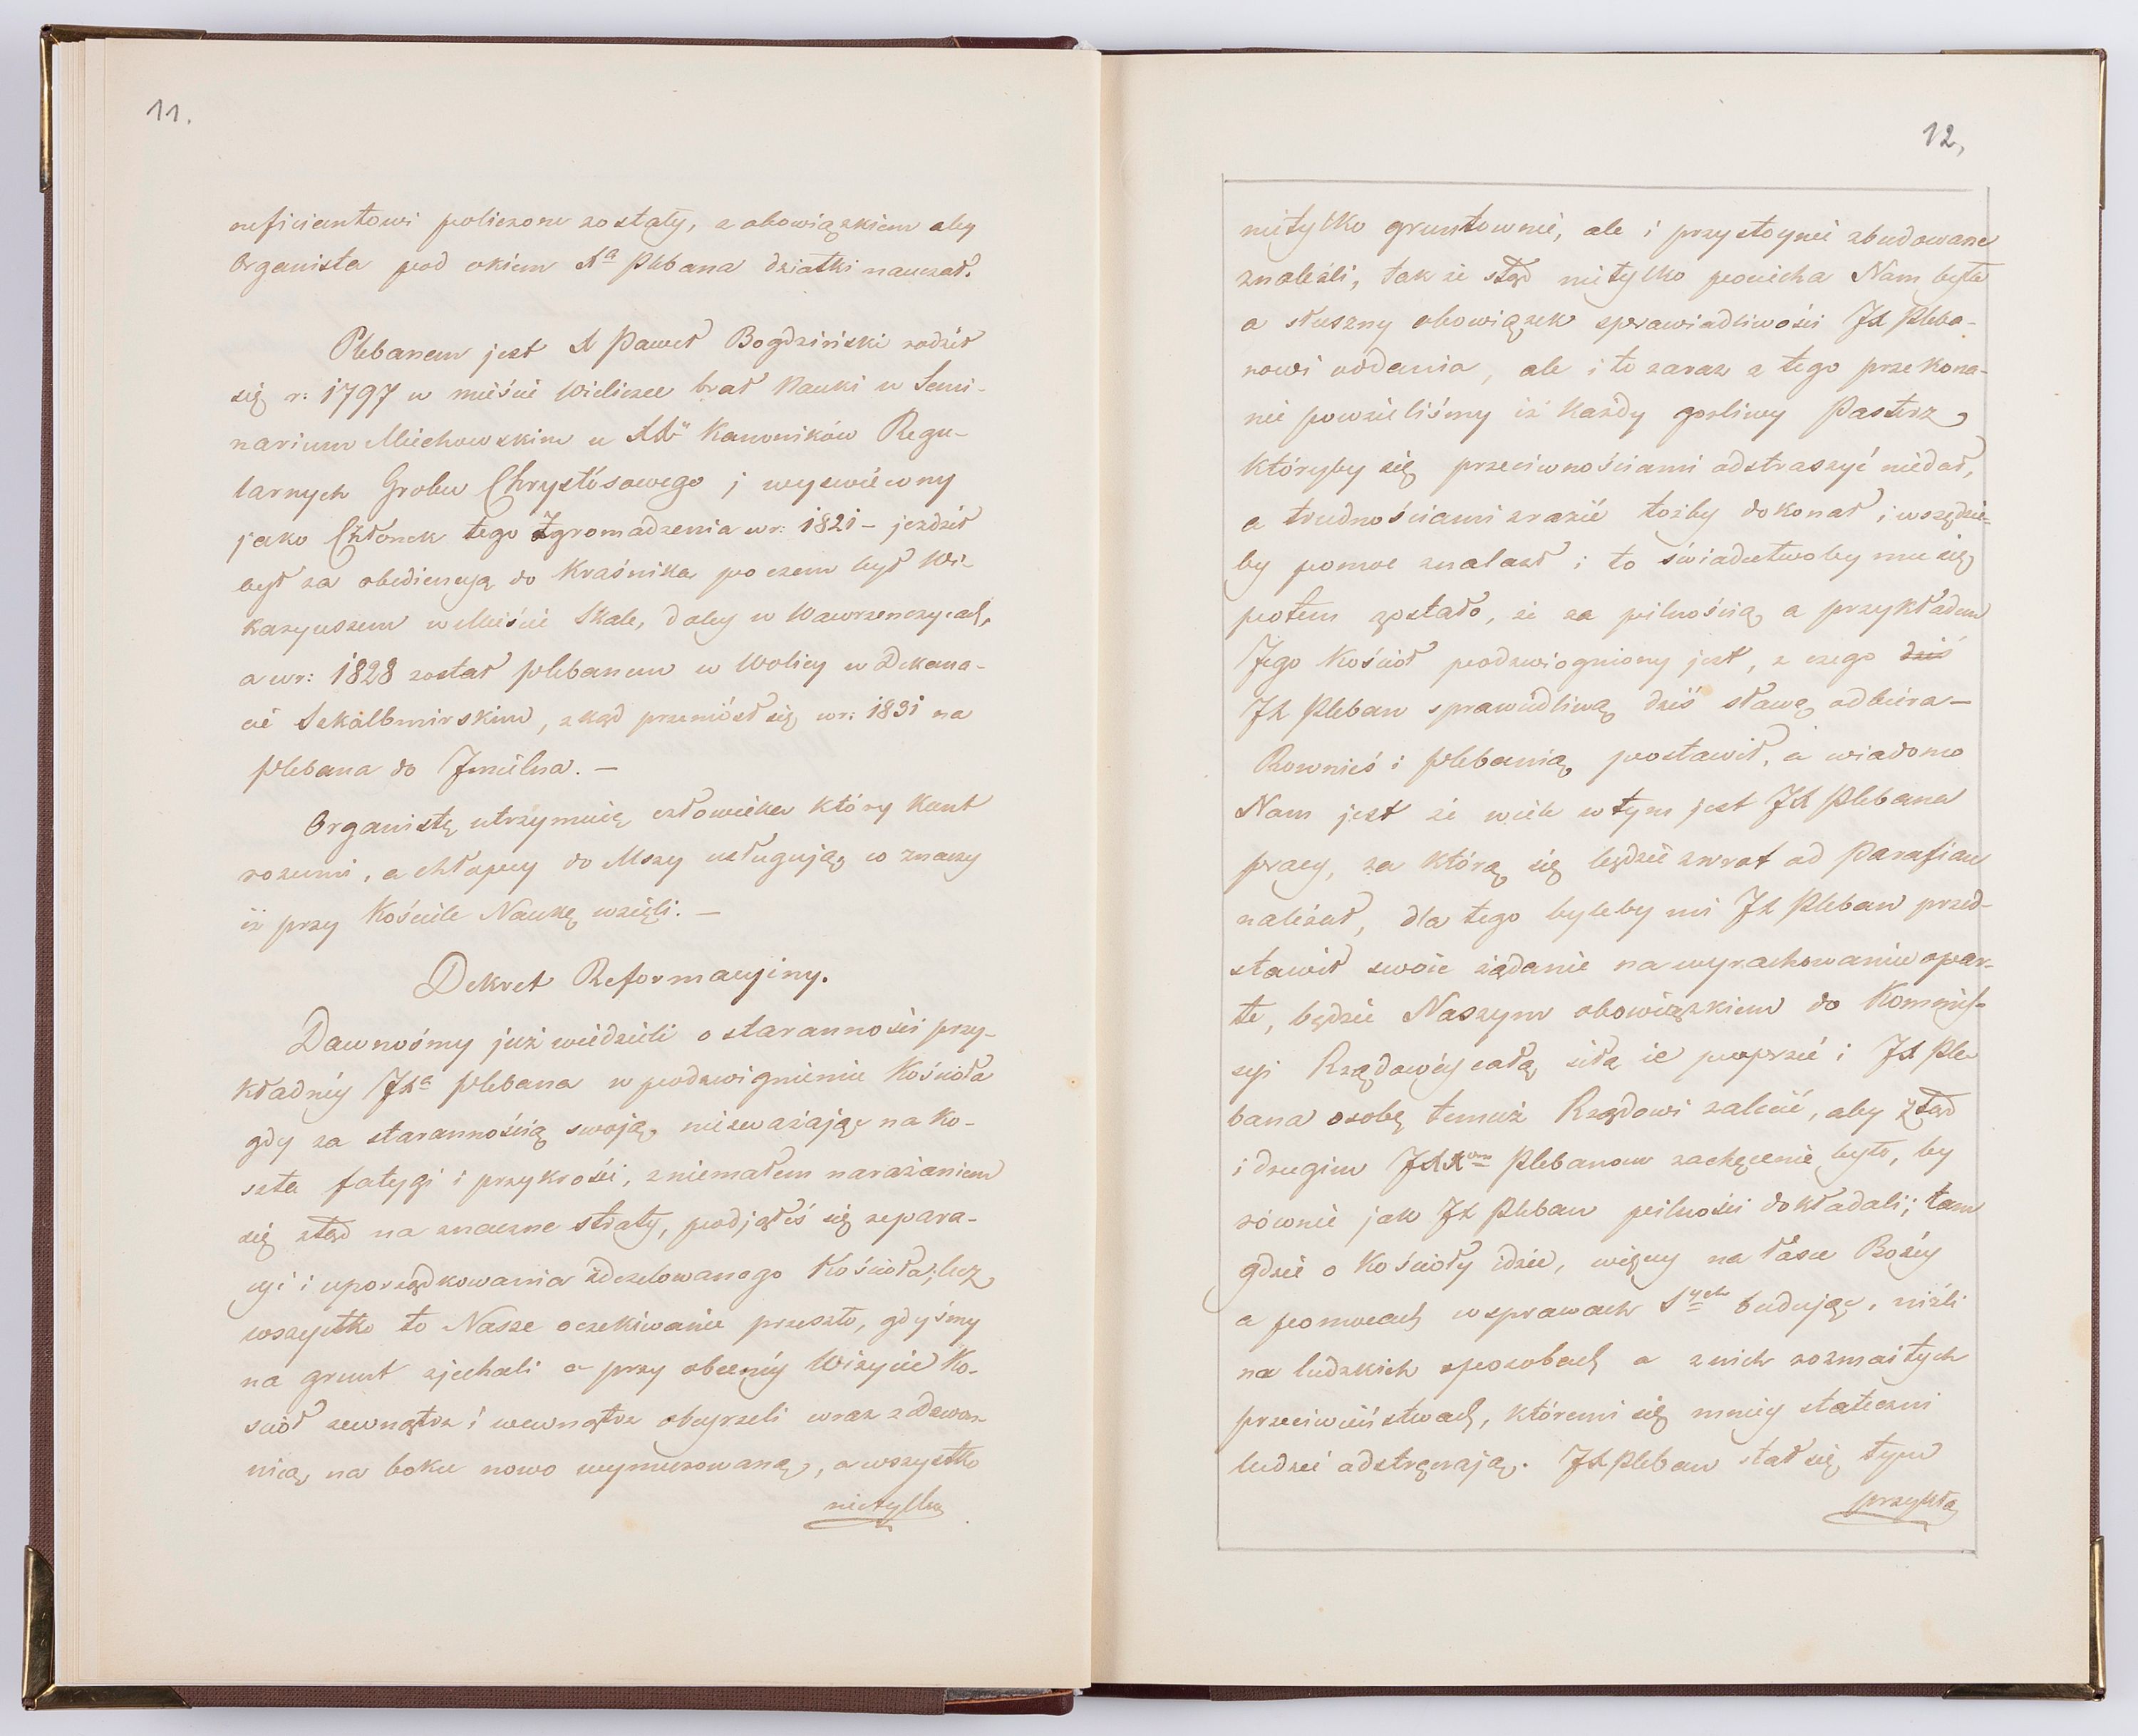 11.
neficiantowi policzone zostały, z obowiązkiem aby
Organista pod okiem Xa Plebana dziatki nauczał.
Plebanem jest X Paweł Bogdziński rodził
się r: 1797 w mieście Wieliczce brał Nauki w Semi-
narium Miechowskim u XX Kanoników Regu-
larnych Grobu Chrystusowego i wyświęcony
jako Członek tego Zgromadzenia w r: 1821 – jeździł
był za obediencyą do Kraśnika poczem był Wi-
karyuszem w Mieście Skale, daley w Wawrzenczycach,
a w r: 1828 został Plebanem w Wolicy w Dekana-
cie Szkalbmirskim, zkąd przeniósł się w r: 1831 na
Plebana do Imielna. –
Organistę utrzymuię człowieka który Kant
rozumi, a chłopcy do Mszy usługują co znaczy
iż przy Kościele Naukę wzięli. –
Dekret Reformacyiny.
Dawnośmy już wiedzieli o staranności przy-
kładnéy JXa Plebana w podzwignieniu Kościoła
gdy za starannością swoją, niezważając na Ko-
szta fatygi i przykrości, z niemałem narażaniem
się ztąd na znaczne straty, podjąłeś się repara-
cyi i uporządkowania zdezelowanego Kościoła; lecz
wszystko to Nasze oczekiwanie przeszło, gdyśmy
na grunt zjechali a przy obecnéy Wizycie Ko-
sciół zewnątrz i wewnątrz obeyrzeli wraz z Dzwon-
nicą, na boku nowo wymurowaną, a wszystko
nietylko
12,
nietylko gruntownie, ale i przystoynie zbudowane
znaleźli, tak że stąd nietylko pociecha Nam była
a słuszny obowiązek sprawiedliwości JX Pleba-
nowi oddania, ale i to zaraz z tego przekona-
nie powzieliśmy iż Każdy gorliwy Pasterz
któryby się przeciwnościami odstraszyć niedał,
a trudnościami zrazić tożby dokonał i wszędzie-
by pomoc znalazł i to świadectwoby mu się
potem zostało, że za pilnością a przykładem
Jego Kościół podzwigniony jest, z czego dziś
JX Pleban sprawiedliwą dziś sławę odbiera –
Rownież i Plebanią postawił, a wiadomo
Nam jest że wiele w tym jest JX Plebana
pracy, za którą się będzie zwrot od Parafian
należał, dla tego byleby mi JX Pleban przed-
stawił swoie żądanie na wyrachowaniu opar-
te, będzie Naszym obowiązkiem do Kommis-
syi Rządowéy całą siłą ie poprzeć i JX Ple
bana osobę temuż Rządowi zalecić, aby ztąd
i drugim JXXom Plebanom zachęcenie było, by
równie jak JX Pleban pilności dokładali; tam
gdzie o Kościoły idzie, więcy na łasce Bożéy
a pomocach w sprawach Sych budując, niźli
na ludzkich sposobach a z nich rozmaitych
przeciwieństwach, któremi się mniéy stateczni
ludzie odstręczają. JX Pleban stał się tym
przykła